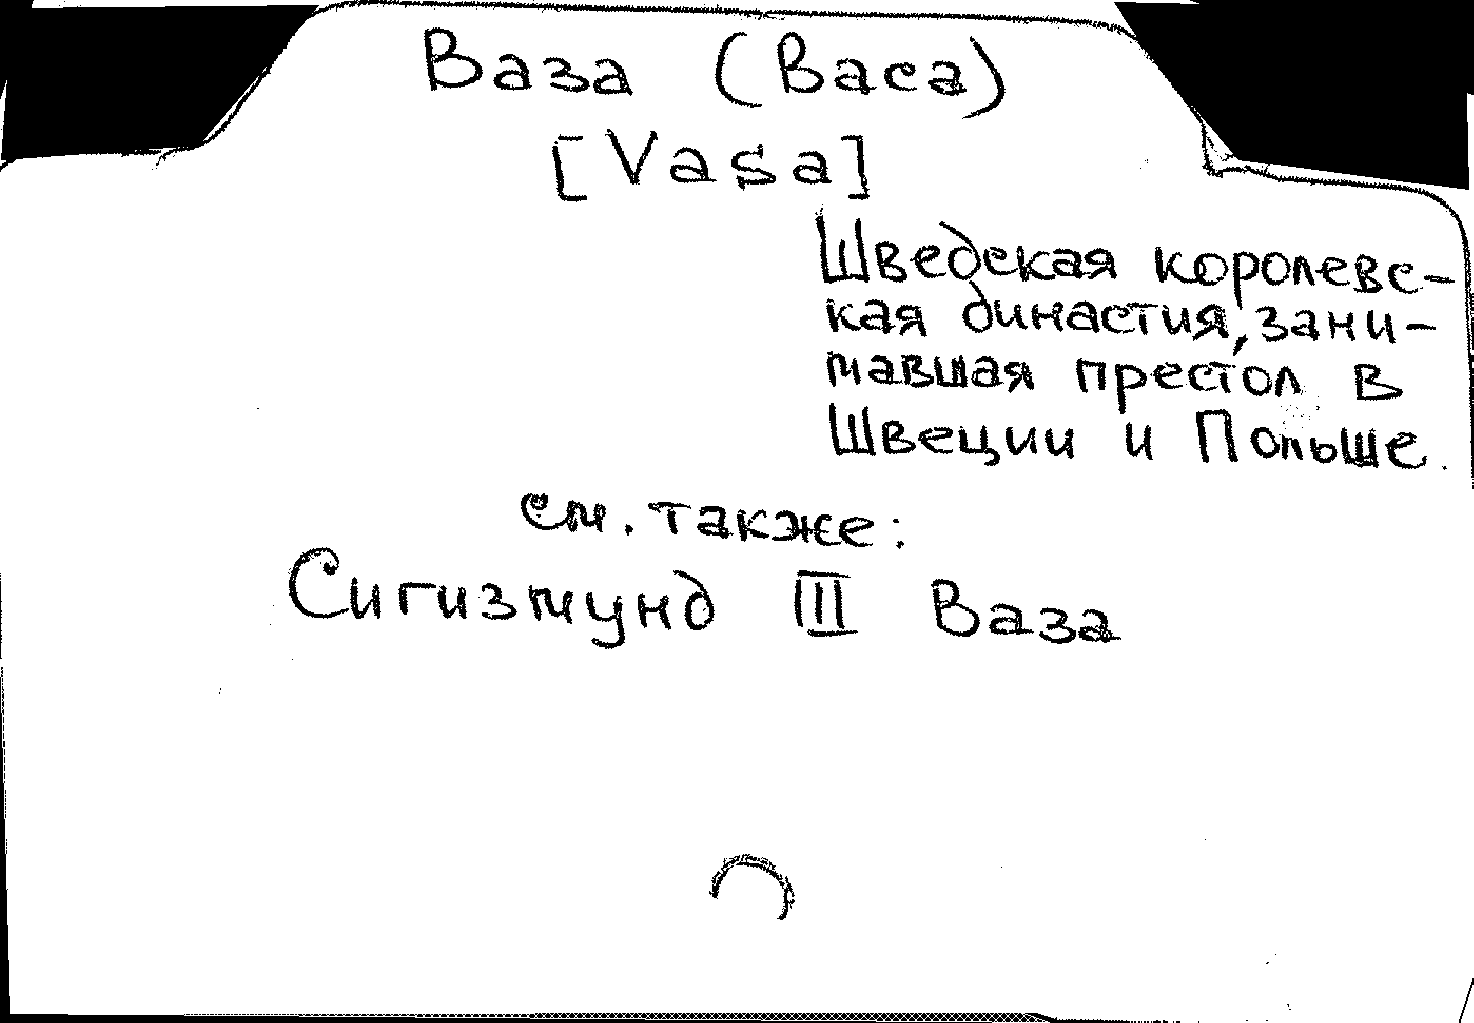 Ваза (Васа)
[Vasa]
Шведская королевс-
кая династия, зани-
мавшая престол в
Швеции и Польше.
см. также:
Сигизмунд III Ваза